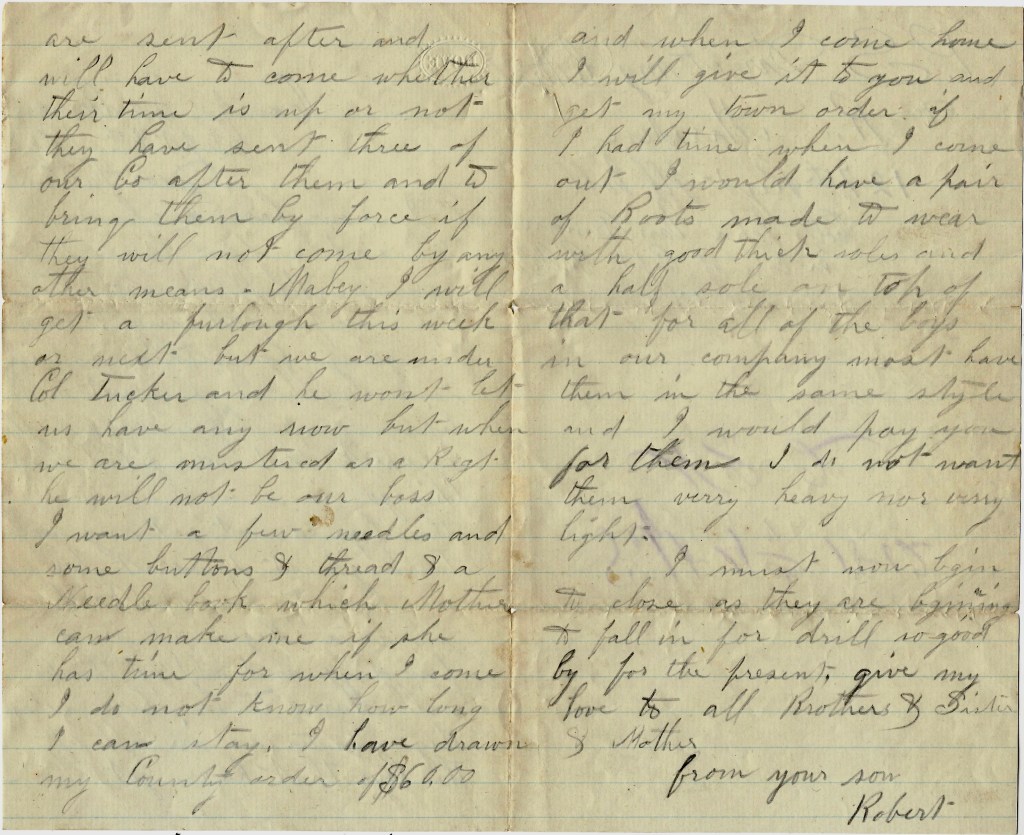 are sent after and
will have to come whether
their time is up or not
they have sent three of
our Co after them and to
bring them by force if
they will not come by any
other means - Mabey I will
get a furlough this week
or next but we are under
Col Tucker and he wont let
us have any now but when
we are mustered as a Regt
he will not be our boss
I want a few needles and
some buttons & thread & a
Needle book which Mother
can make me if she
has time for when I come
I do not know how long
I can stay, I have drawn
my County order of $60.00
and when I come home
I will give it to you and
get my Town order. if
I had time when I come
out I would have a pair
of Boots made to wear
with good thick soles and
a half sole on top of
that for all of the boys
in our company most have
them in the same style
and I would pay you
for them I do not want
them verry heavy nor verry
light.
I must now bgin
to close as they are bgining
to fall in for drill so good
by for the present, give my
love to all Brothers & Sister
& Mother
from your son
Robert